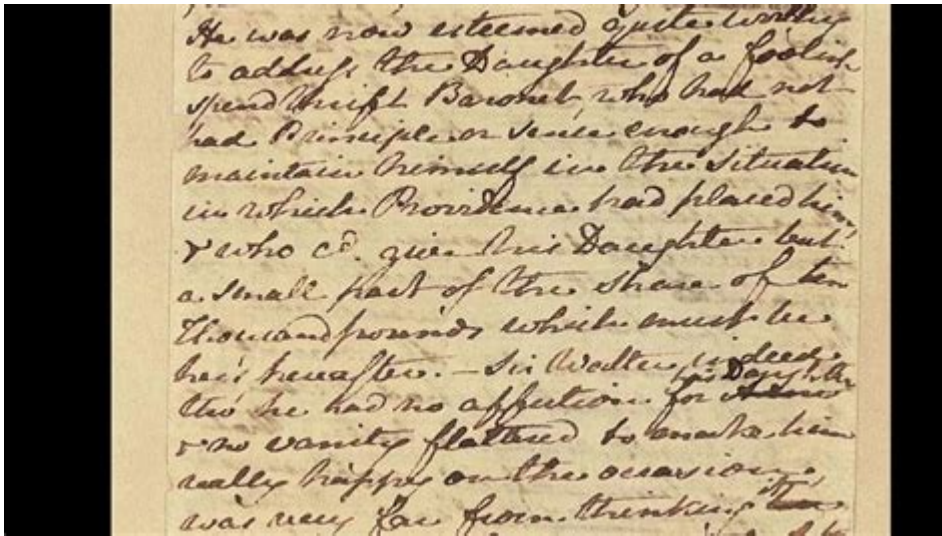 He was now esteemed quite worthy
to address the Daughter of a foolish
spendthrift Baronet, who had not
had Principle or sense enough to
maintain himself in the Situation
in which Providence had placed him,
& who cd. give his Daughter but
a small part of the share of ten
Thousand pounds which must be
her's hereafter. – Sir Walter indeed
tho' he had no affection for his Daughter
& no vanity flattered to make him
really happy on the occasion,
was very far from thinking